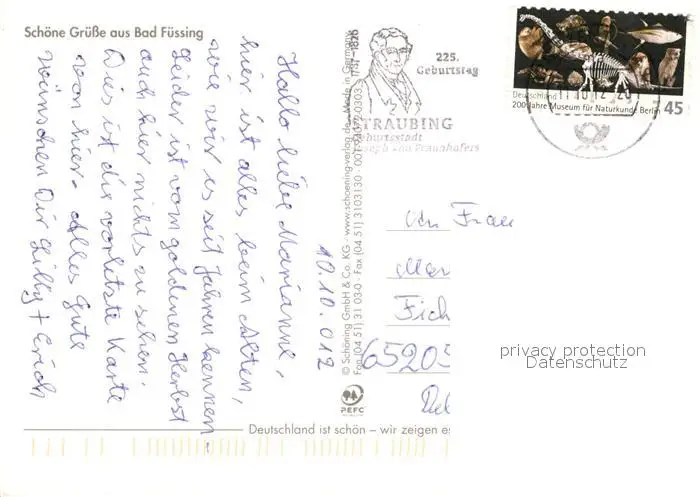 Schöne Grüße aus Bad Füssing
10.10.012
Hallo liebe Marianne,
hier ist alles beim Alten,
wie wir es seit Jahren kennen –
Leider ist vom goldenen Herbst
auch hier nichts zu sehen.
Dies ist die vorletzte Karte
von hier. Alles Gute
wünschen Dir Lilly + Erich
1787-1826
225.
Geburtstag
STRAUBING
Geburtsstadt
Joseph von Fraunhofers
Deutschland
200 Jahre Museum für Naturkunde Berlin
45
© Schöning GmbH & Co. KG · www.schoening-verlag.de · Made in Germany
Fon (04 51) 31 03-0 · Fax (04 51) 3103130
An Frau
Mar
Fich
65205
PEFC
privacy protection
Datenschutz
Deutschland ist schön – wir zeigen es